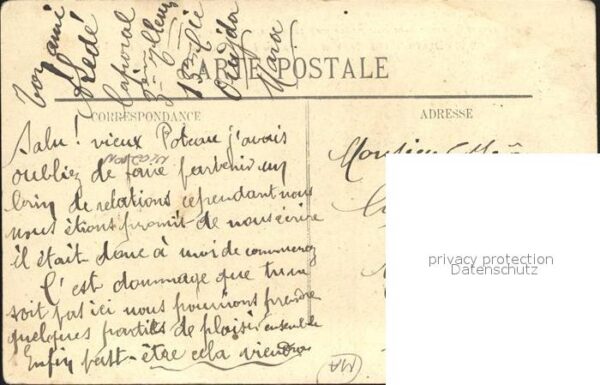 Ton ami
Dédé
Caporal
13me Cie
Oudjda
Maroc
CARTE POSTALE
CORRESPONDANCE
ADRESSE
Salu! vieux Poteau j'avais
oubliez de faire parvenir un
brin de relations cependant nous
nous étions promit de nous écrire
il était donc à moi de commencez
C'est dommage que tu ne
soit pas ici nous pourrions prendre
quelques parties de plaisir ensemble
Enfin peut-être cela viendra
Monsieur
privacy protection
Datenschutz
MA